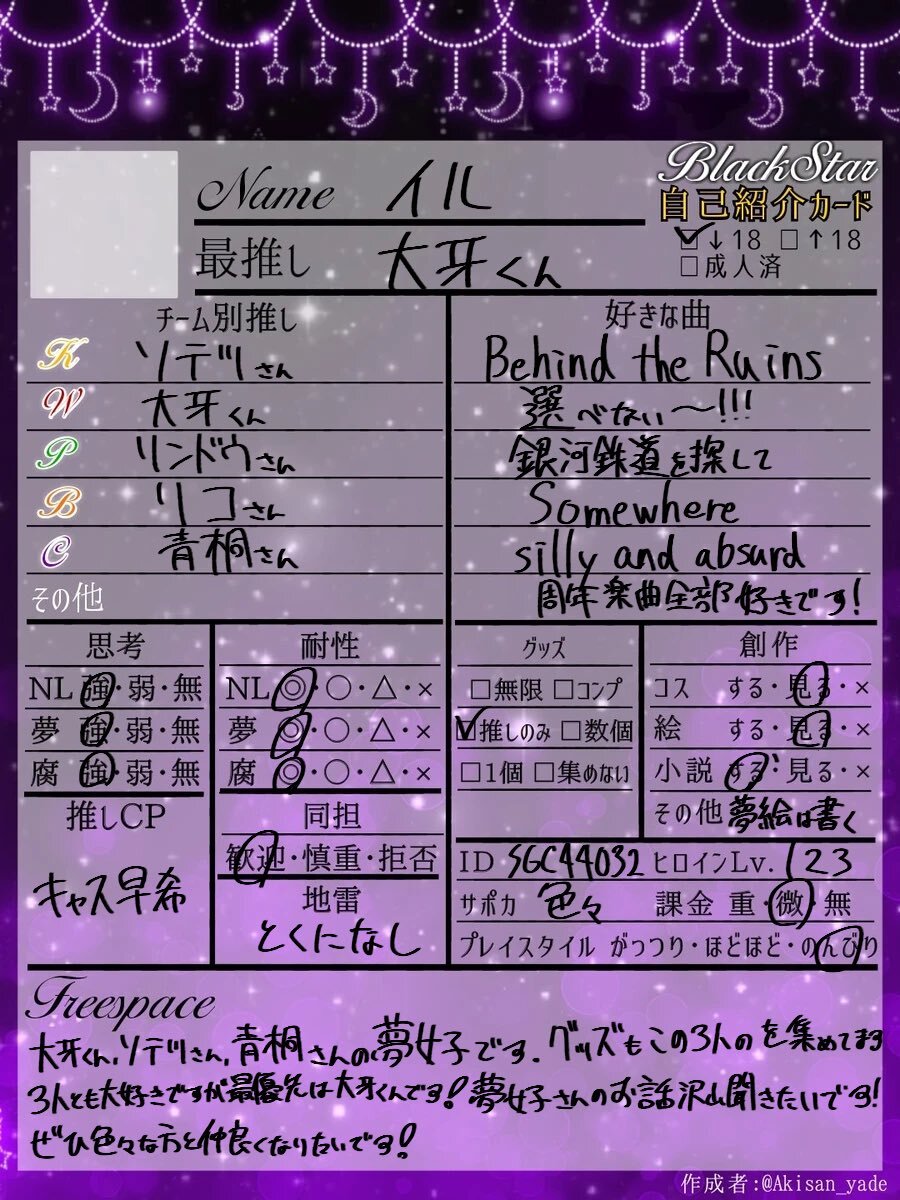 BlackStar
自己紹介カード
Name イル
☑↓18 □↑18
□成人済
最推し 大牙くん
チーム別推し
K ソテツさん
W 大牙くん
P リンドウさん
B リコさん
C 青桐さん
その他
好きな曲
Behind the Ruins
選べない〜!!!
銀河鉄道を探して
Somewhere
silly and absurd
周年楽曲全部好きです!
思考
NL 強・弱・無
夢 強・弱・無
腐 強・弱・無
耐性
NL ◎・○・△・×
夢 ◎・○・△・×
腐 ◎・○・△・×
グッズ
□無限 □コンプ
☑推しのみ □数個
□1個 □集めない
創作
コス する・見る・×
絵 する・見る・×
小説 する・見る・×
その他 夢絵は書く
推しCP
キャス早希
同担
歓迎・慎重・拒否
地雷
とくになし
ID SGC44032 ヒロインLv. 123
サポカ 色々 課金 重・微・無
プレイスタイル がっつり・ほどほど・のんびり
Freespace
大牙くん,ソテツさん,青桐さんの夢女子です.グッズもこの3人のを集めてます
3人とも大好きですが最優先は大牙くんです!夢女子さんのお話沢山聞きたいです!
ぜひ色々な方と仲良くなりたいです!
作成者:@Akisan_yade